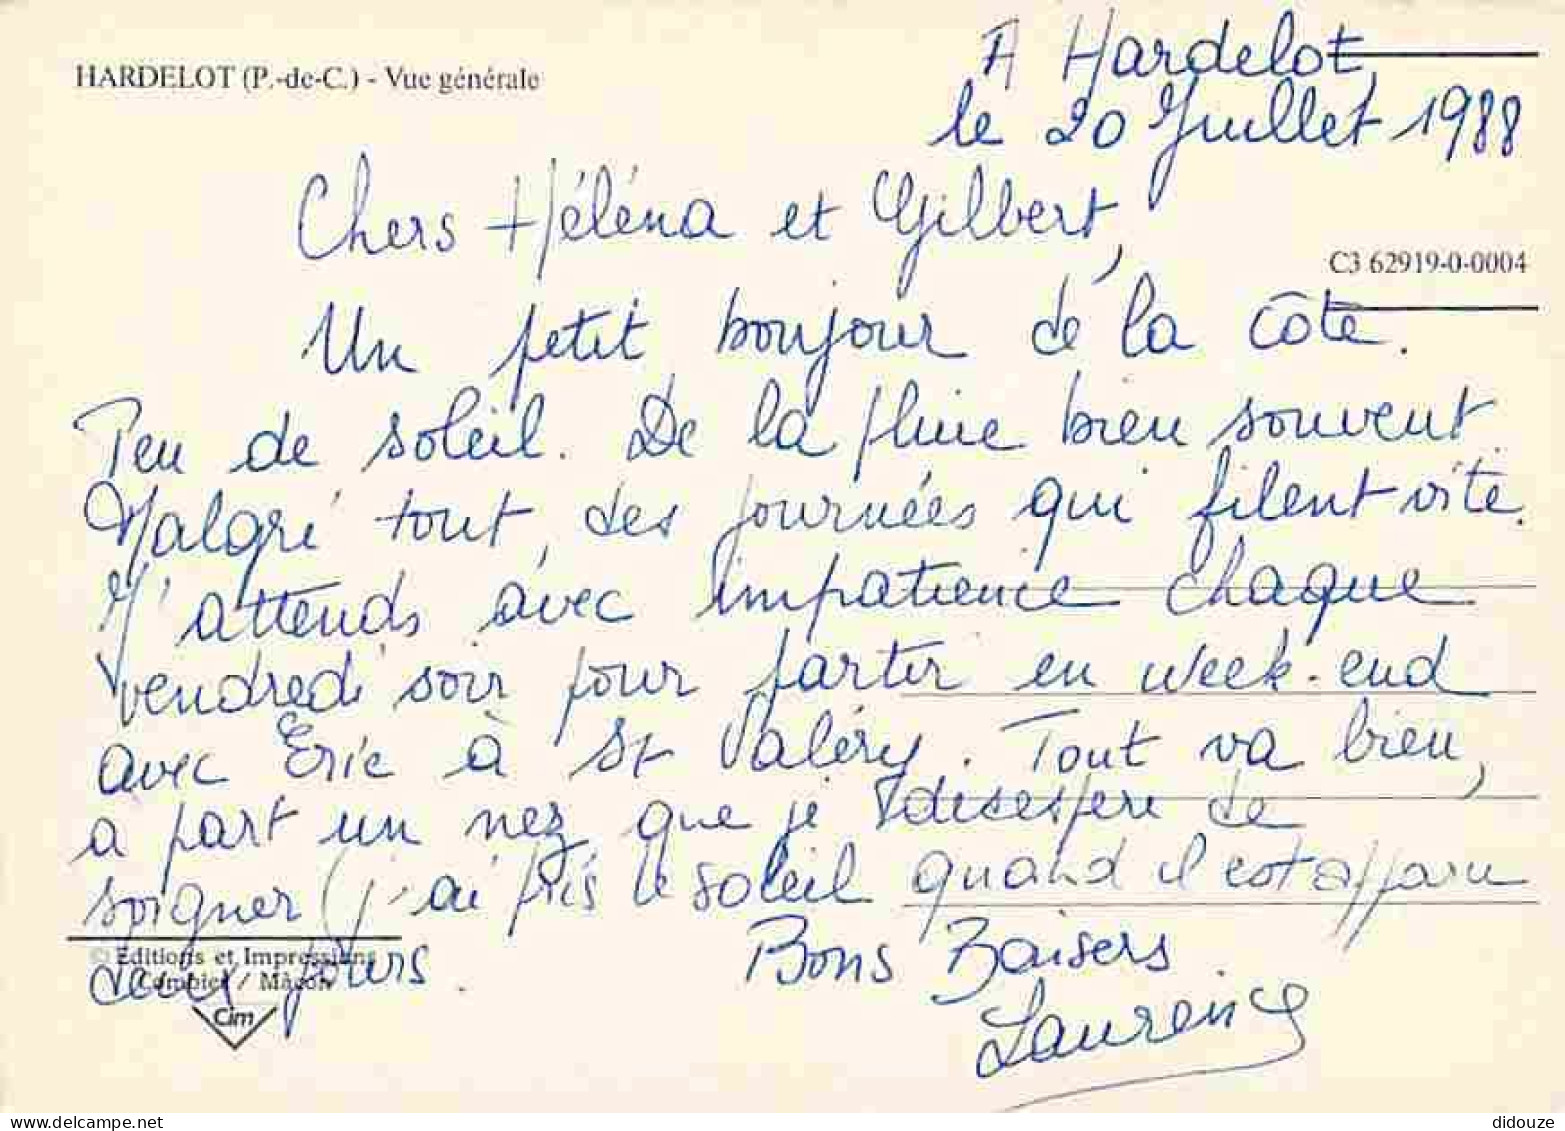 HARDELOT (P.-de-C.) - Vue générale
A Hardelot,
le 20 Juillet 1988
Chers Héléna et Gilbert,
C3 62919-0-0004
Un petit bonjour de la côte.
Peu de soleil. De la pluie bien souvent.
Malgré tout, des journées qui filent vite.
J'attends avec impatience chaque
vendredi soir pour partir en week-end
avec Eric à St Valéry. Tout va bien,
a part un nez que je désespère de
soigner (j'ai pris le soleil quand il est apparu
deux jours.
Bons Baisers
Laurence
© Editions et Impressions
Combier / Mâcon
Cim
delcampe.net
didouze